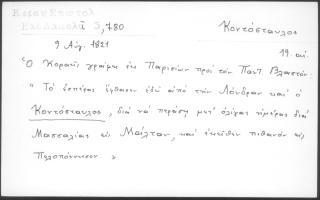 Κοραή Επιστολ
3, 780
Κοντόσταυλος
9 Αύγ. 1821
Ὁ Κοραῆς γράφει ἐκ Παρισίων πρὸς τὸν Βλαστόν
" Τὸ ἑσπέρας ἔφθασεν ἐδῶ ἀπὸ τὴν Λόνδραν καὶ ὁ
Κοντόσταυλος, διὰ νὰ περάσῃ μετ' ὀλίγας ἡμέρας διὰ
Μασσαλίας εἰς Μάλταν, καὶ ἐκεῖθεν πιθανὸν εἰς
Πελοπόννησον "